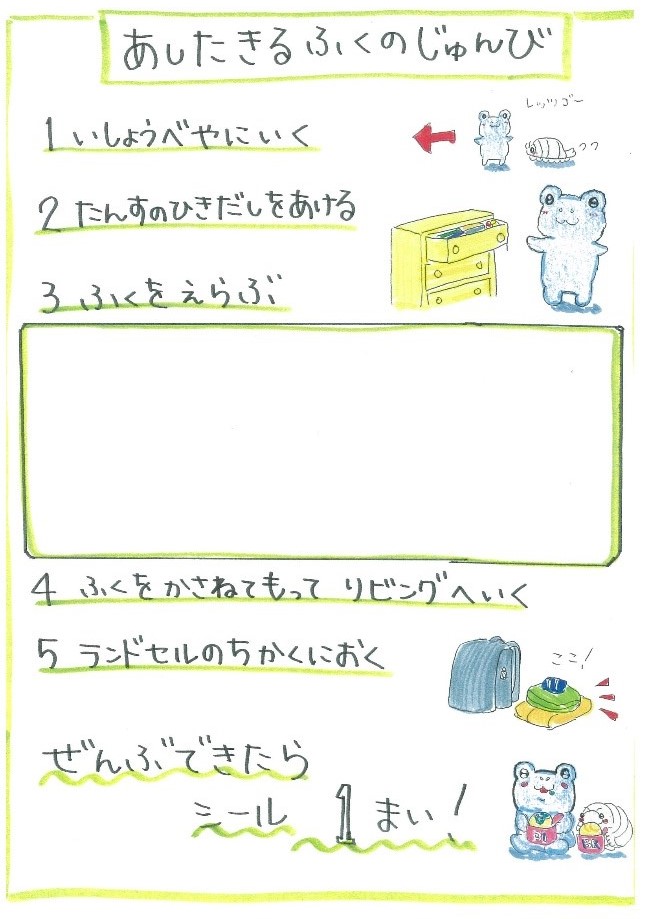 あしたきるふくのじゅんび
1 いしょうべやにいく
レッツゴー
2 たんすのひきだしをあける
3 ふくをえらぶ
4 ふくをかさねてもって リビングへいく
5 ランドセルのちかくにおく
ここ!
ぜんぶできたら
シール 1 まい!